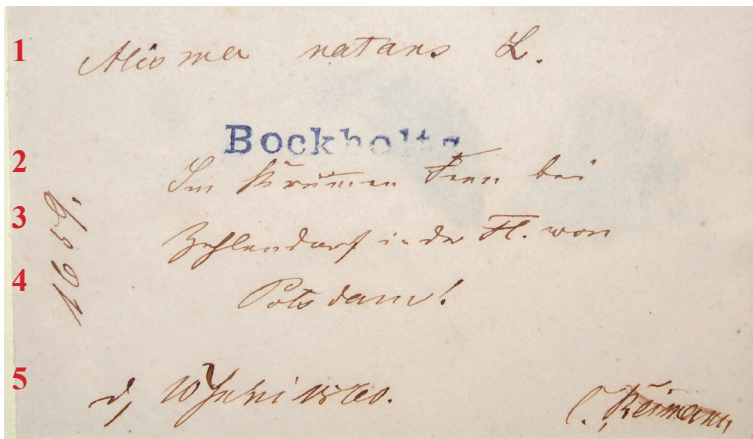 1 Alisma natans L.
Bockholtz
2 Im Krummen Fenn bei
3 Zehlendorf in der Fl. von
4 Potsdam!
1659.
5 d, 10 Juni 1860. C. Reimann